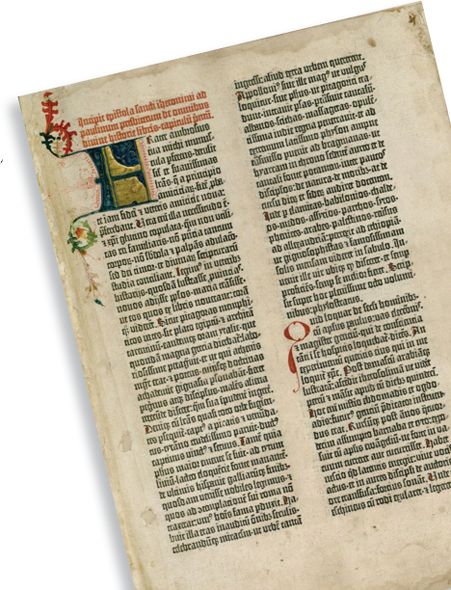 Incipit epistola sancti iheronimi ad
paulinum presbiterum de omnibus
diuine historie libris·capitulū p̄mū.
Frater ambrosius
tua michi munus-
cula pferens·detulit
sil' et suauissimas
lr̄as·q̄ a principio
amicitiaꝝ·fidē pba-
te iam fidei et veteris amicicie noua:
pferebant. Uera enī illa necessitudo ē·
et xp̄i glutino copulata·qm̄ non vtili-
tas rei familiaris·nō pn̄tia tantum
corpoꝝ·nō sbdola et palpās adulaco·
sed dei timor·et diuinaꝝ scripturarū
studia conciliant. Legim⁹ in veterib⁹
historijs·quosdā lustrasse ꝓuīcias·
nouos adisse pplos·maria trāsisse·
ut eos quos ex libris nouerant: corā
q⁊ viderēt. Sicut pitagoras memphi-
ticos vates·sic plato egiptū·et architā
tarentinū·eandemq⁊ orā ytalie·que
quondā magna grecia dicebat̄: labo-
riosissime peragrauit·et ut qui athenis
mgr̄ erat·et potens·cuiusq⁊ doctrinas
achademie gignasia psonabāt·fieret
peginus atq⁊ discipls·malens aliena
verecunde discere: qm̄ sua īpudent̄ ingere.
Deniq⁊ cū lr̄as quasi toto orbe fugien-
tes psequit̄·capt⁹ a piratis et venūda-
tus·tirāno crudelissimo paruit·duct⁹
captiu⁹ vinct⁹ et seruus. Tamē quia
ph̄us maior emente se fuit·ad tytum
liuiū·lacteo eloquētie fonte manantē·
de vltimis hispanie galliarūq⁊ finib⁹·
quosdam venisse nobiles legimus: et
quos ad ꝯtemplaconē sui roma nō
traxerat: uni⁹ hoīs fama pduxit. Ha-
buit illa etas inauditū oīb⁹ seculis·
celebrandūq⁊ miraculū: ut urbē tantā
ingressi: aliud extra urbem quererent.
Apolloni⁹ siue ille mag⁹ ut vulgus
loquitur·siue ph̄us ut pitagorici tra-
dunt·intrauit psas·ptransiuit caucasū·
albanos·scithas·massagetas·opulē-
tissima indie regna penetrauit·et ad
extremum latissimo physon ampne
trāsmisso puenit ad bragmanas·ut
hyarcam in throno sedētē aureo et de
tantali fonte potantem·inter paucos
discipulos·de natura·de moribꝫ ac de
cursu dieꝝ et sideꝝ audiret docentem.
Inde p elamitas·babilonios·chalde-
os·medos·assyrios·parthos·syros·
phenices·arabes·palestinos·reuersus
ad alexandriā: perrexit ad ethiopiā·
ut gignosophistas et famosissimam
solis mensam videret in sabulo. In-
uenit ille vir ubiq⁊ qd̄ disceret·et semp
proficiens·semp se melior fieret. Scrip-
sit super hoc plenissime octo volumi-
nibus: phylostratus.
Quid loquar de seculi hominib⁹·
cū apl̄us paulus vas electōnis·
et magister gentiū·qui de conscientia
tāti i se hospitis loquebat̄ dicēs. An
experimentū queritis eius qui in me
loquit̄ xp̄c. Post damascū arabiāq⁊
lustratā: ascēdit iherosolimā ut videret
petrū et māsit apud eū diebꝫ quindeci.
Hoc enī misterio ebdomadis et ogdo-
adis: futur⁹ gentiū p̄dicator instruen-
dus erat. Rursūq⁊ post ānos q̄tuor-
decim assumpto barnaba et tyto: expo-
suit cū apl̄is euāgeliū·ne forte in va-
cuum curreret aut cucurrisset. Habet
nescio qd̄ latentis energie: viue vocis
actus·et in aures discipli de auctoris
ore transfusa: forcius sonat. Unde et
eschines cū rodi exularet·et legeretur